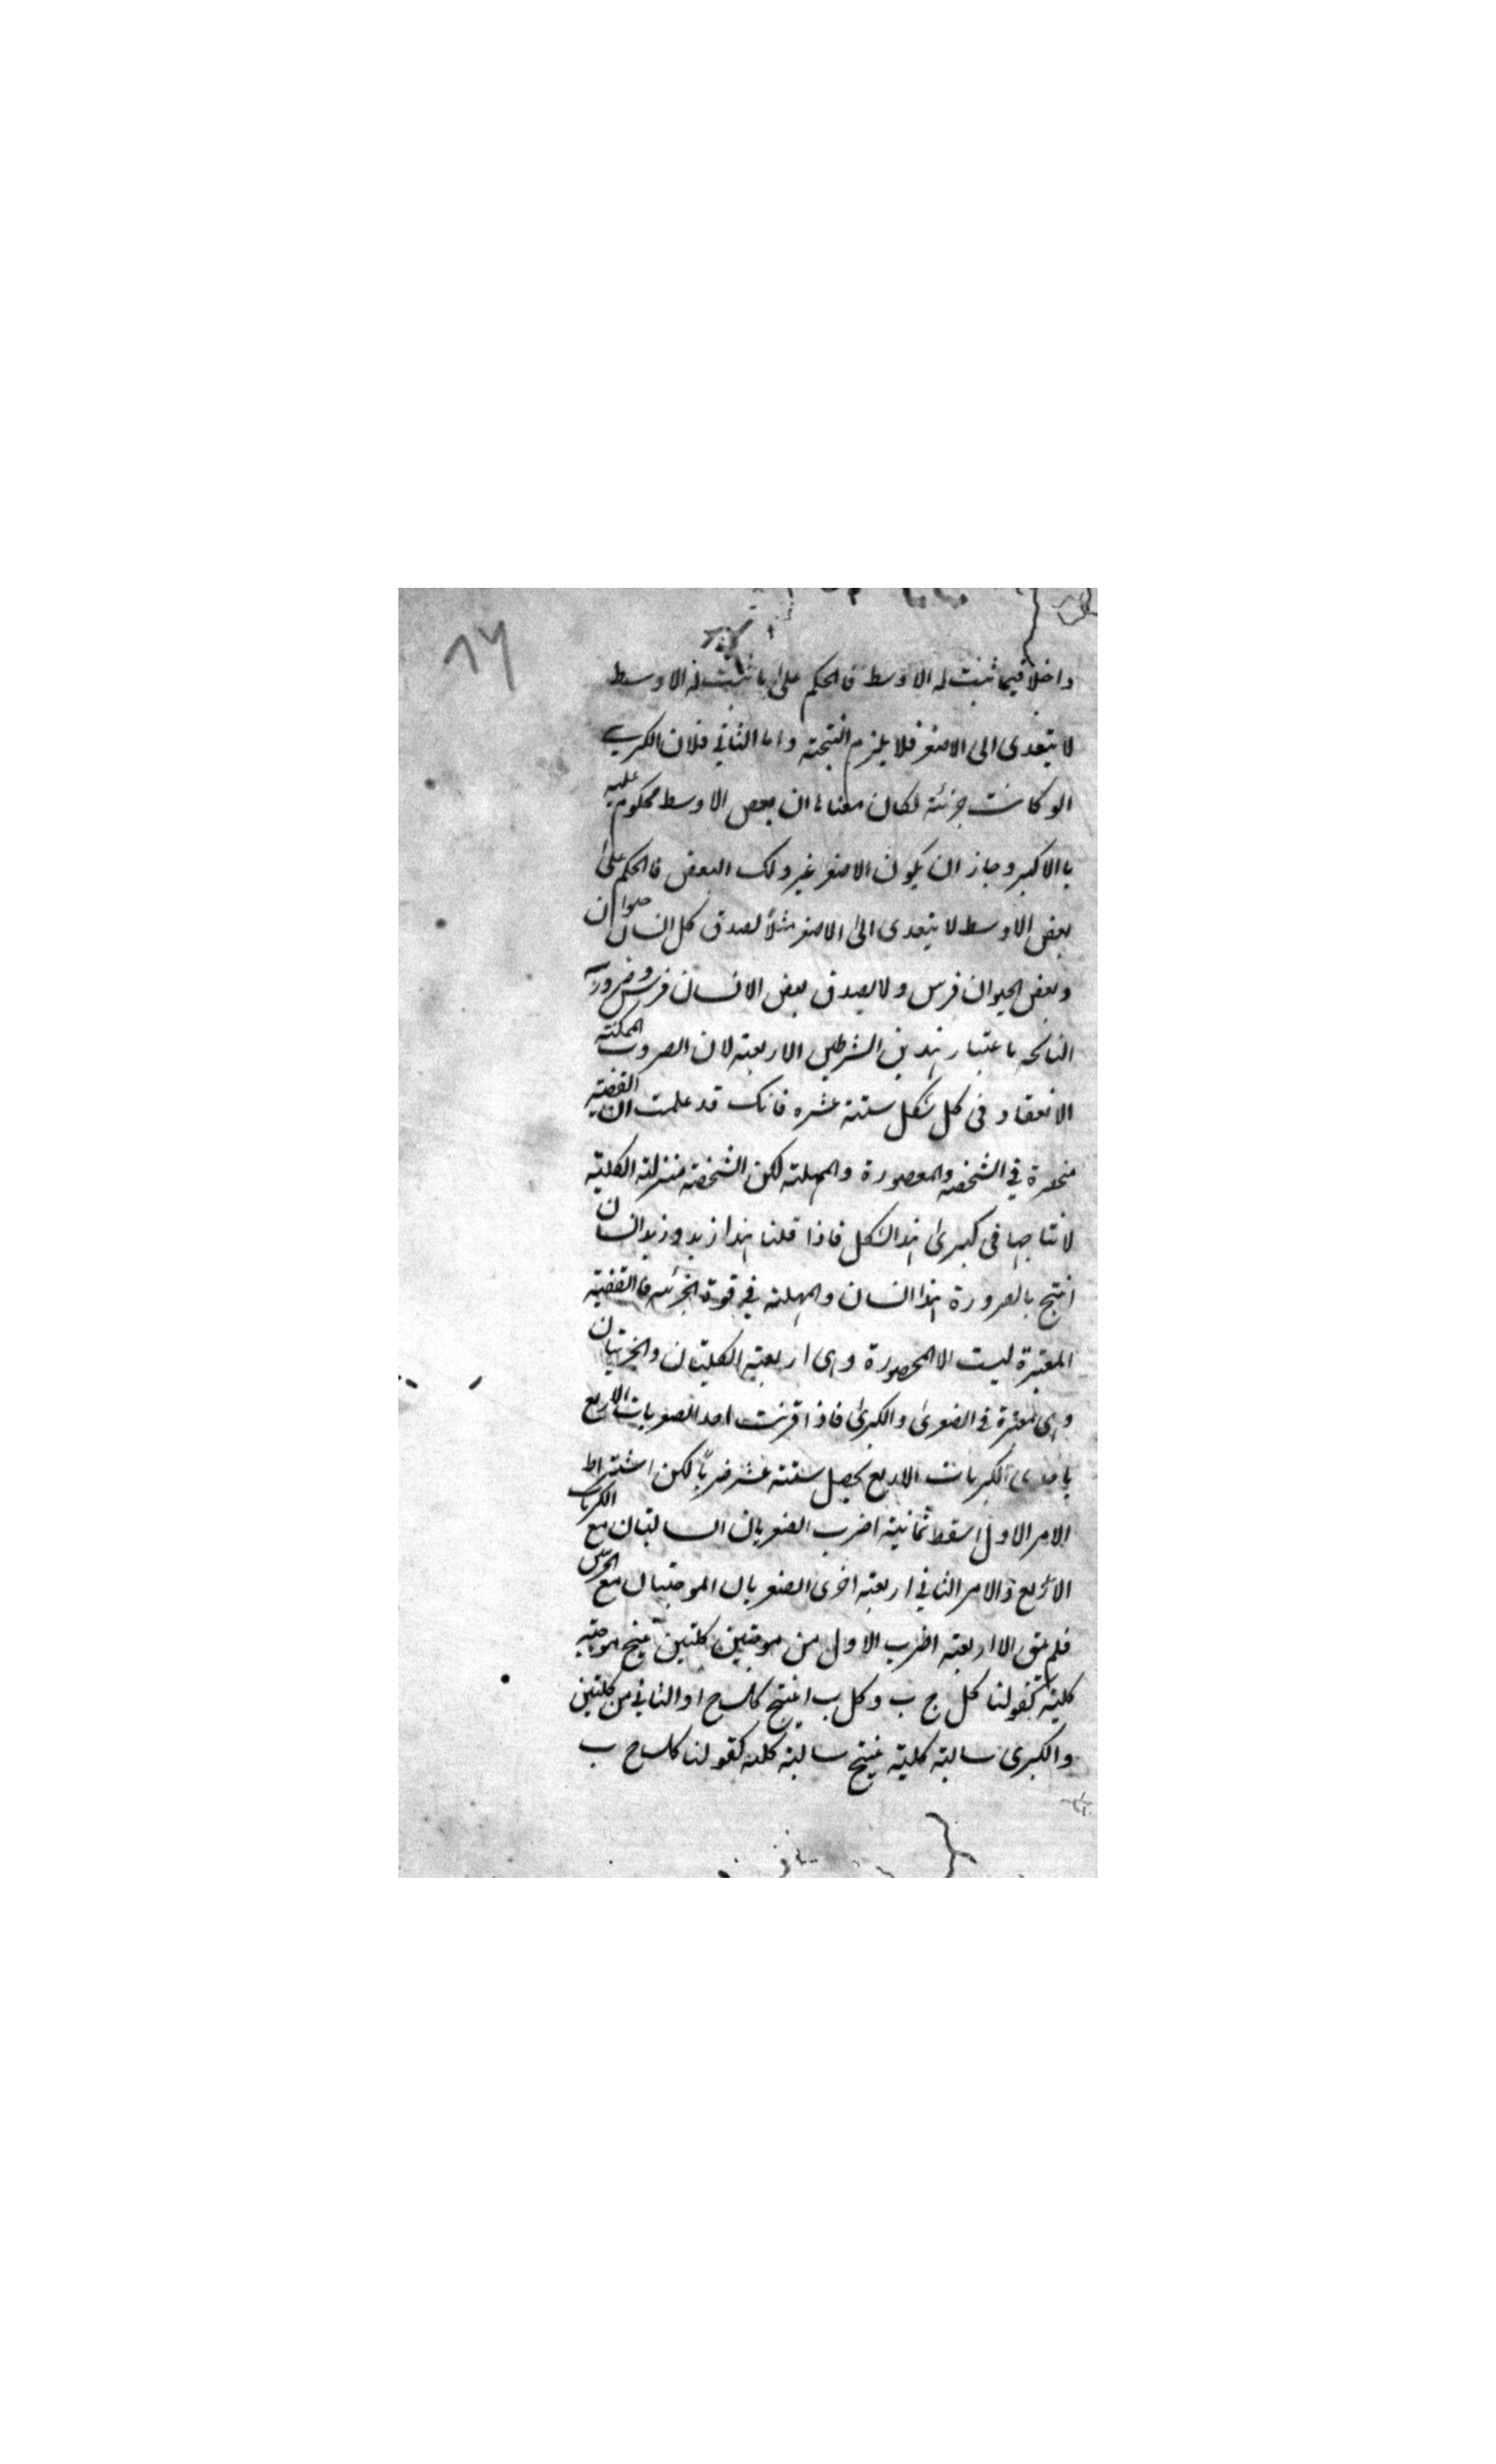 ٨٦
داخلا فيما ثبت له الاوسط فالحكم على ما ثبت له الاوسط
لا يتعدى الى الاصغر فلا يلزم النتيجة واما الثاني فلان الكبرى
لو كانت جزئية لكان معناها ان بعض الاوسط محكوم عليه
بالاكبر وجاز ان يكون الاصغر غير ذلك البعض فالحكم على
بعض الاوسط لا يتعدى الى الاصغر مثلاً لصدق كل انسان حيوان
وبعض الحيوان فرس ولا يصدق بعض الانسان فرس وضروبه
الناتجه باعتبار هذين الشرطين الاربعة لان الضروب الممكنة
الانعقاد في كل شكل ستة عشره فانك قد علمت ان القضية
منحصرة في الشخصية والمحصورة والمهملة لكن الشخصية منزلة الكلية
لانتاجها في كبرى هذا الشكل فاذا قلنا هذا زيد وزيد انسان
انتج بالضرورة هذا انسان والمهملة في قوة الجزئية فالقضية
المعتبرة ليست الا المحصورة وهي اربعة الكليتان والجزئيتان
وهي معتبرة في الصغرى والكبرى فاذا اقرنت احد الصغريات الاربع
باحدى الكبريات الاربع يحصل ستة عشر ضرباً لكن اشتراط
الامر الاول اسقط ثمانية اضرب الصغريان السالبتان مع الكبريات
الاربع والامر الثاني اربعة اخرى الصغريان الموجبتان مع الجزئيتين
فلم يبق الا اربعة اضرب الاول من موجبتين كليتين ينتج موجبة
كلية كقولنا كل ج ب وكل ب ا ينتج كل ج ا والثاني من كليتين
والكبرى سالبة كلية ينتج سالبة كلية كقولنا كل ج ب